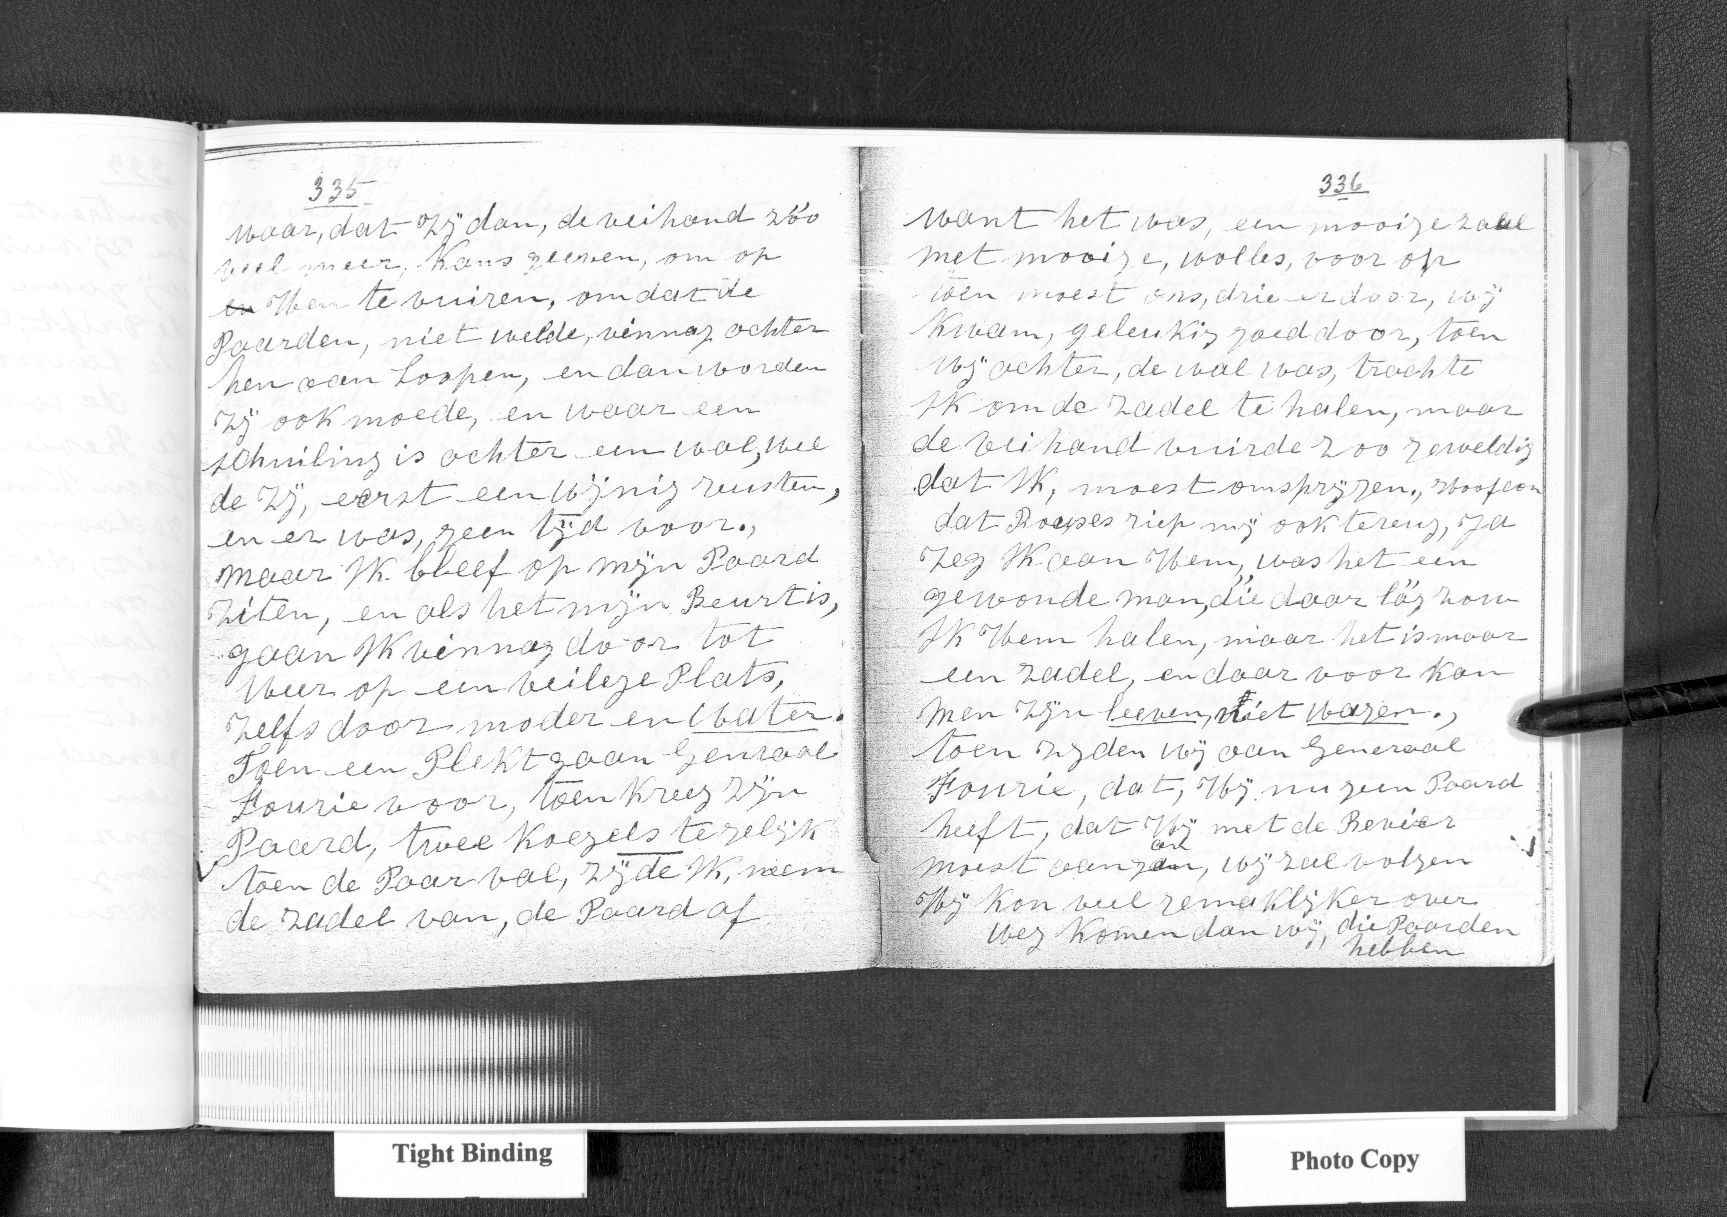 335
waar, dat zÿ dan, de veihand zöo
veel meer, Kans geeven, om op
en Hem te vuiren, omdat de
Paarden, niet welde, vinnag achter
hen aan Loopen, en dan worden
zÿ ook moede, en waar een
schuiling is achter een wal, wee
de zÿ, eerst een wÿnig reusten,
en er was, geen tÿd voor.,
maar Ik bleef op mÿn Paard
ziten, en als het mÿn Beurt is,
gaan Ik vinnag door tot
weer op een veilege Plats,
zelfs door moder en water.
Toen een Plekt gaan Genraal
Fourie voor, toen kreeg zÿn
Paard, twee Koegels tegelÿk
toen de Paar val, zÿde Ik, neem
de zadel van, de Paard af
336
want het was, een mooige zaal
met mooige, wolles, voor op
toen moest ons, drie er door, wÿ
Kwam, geleukig goed door, toen
wÿ achter, de wal was, trachte
Ik om de zadel te halen, maar
de veihand vuirde zoo geweldig
dat Ik, moest omsprÿgen.,
dat Roepes riep mÿ ook tereug, Ja
zeg Ik aan Hem, was het een
gewonde man, die daar läg zow
Ik Hem halen, maar het is maar
een zadel, en daar voor kan
men zÿn leeven, niet wagen.,
toen zÿden wÿ aan Generaal
Fourie, dat, Hÿ nu geen Paard
heeft, dat Hÿ met de Revier
moest aangaan, wÿ zal volgen
Hÿ kon veel gemaklÿker over
weg komen dan wÿ, die Paarden
hebben
Tight Binding
Photo Copy